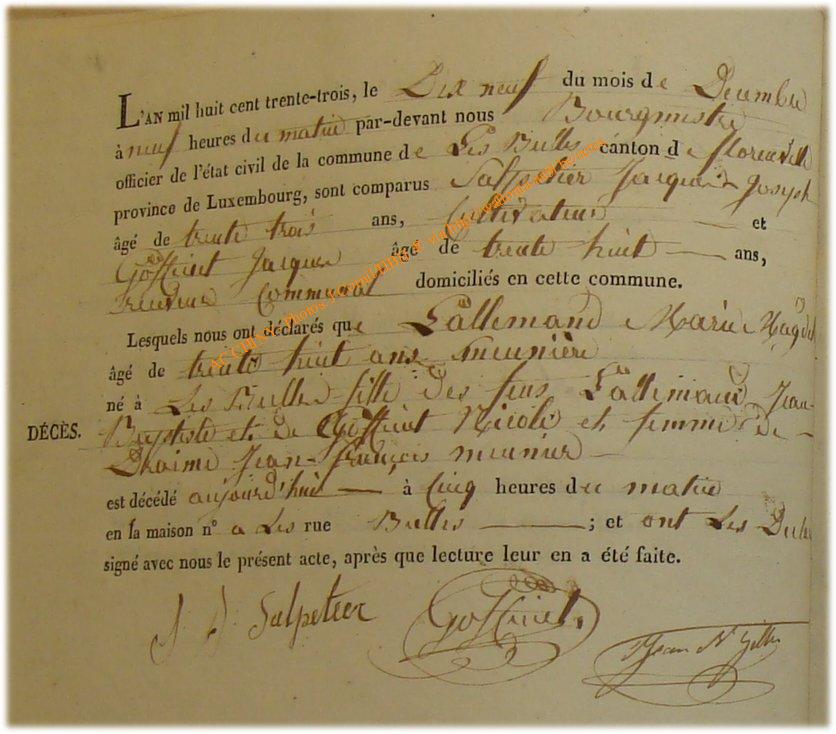 L'AN mil huit cent trente-trois, le Dix neuf du mois de Decembre
à neuf heures du matin par-devant nous Bourgmestre
officier de l'état civil de la commune de Les Bulles canton de florenville
province de Luxembourg, sont comparus Salpetier Jacques Joseph
âgé de trente trois ans, Cultivateur et
Goffinet Jacques âgé de trente huit ans,
receveur Communal domiciliés en cette commune.
Lesquels nous ont déclarés que Lallemand Marie Magdel
âgé de trente huit ans meunière
né à Les Bulles fille des feus Lallemand Jean
DÉCÈS. Baptiste et de Goffinet Nicole et femme de
Dhaime Jean françois meunier
est décédé aujourd'hui à Cinq heures du matin
en la maison n° a Les rue Bulles ; et ont Les
signé avec nous le présent acte, après que lecture leur en a été faite.
J J Salpetier Goffinet Jean N